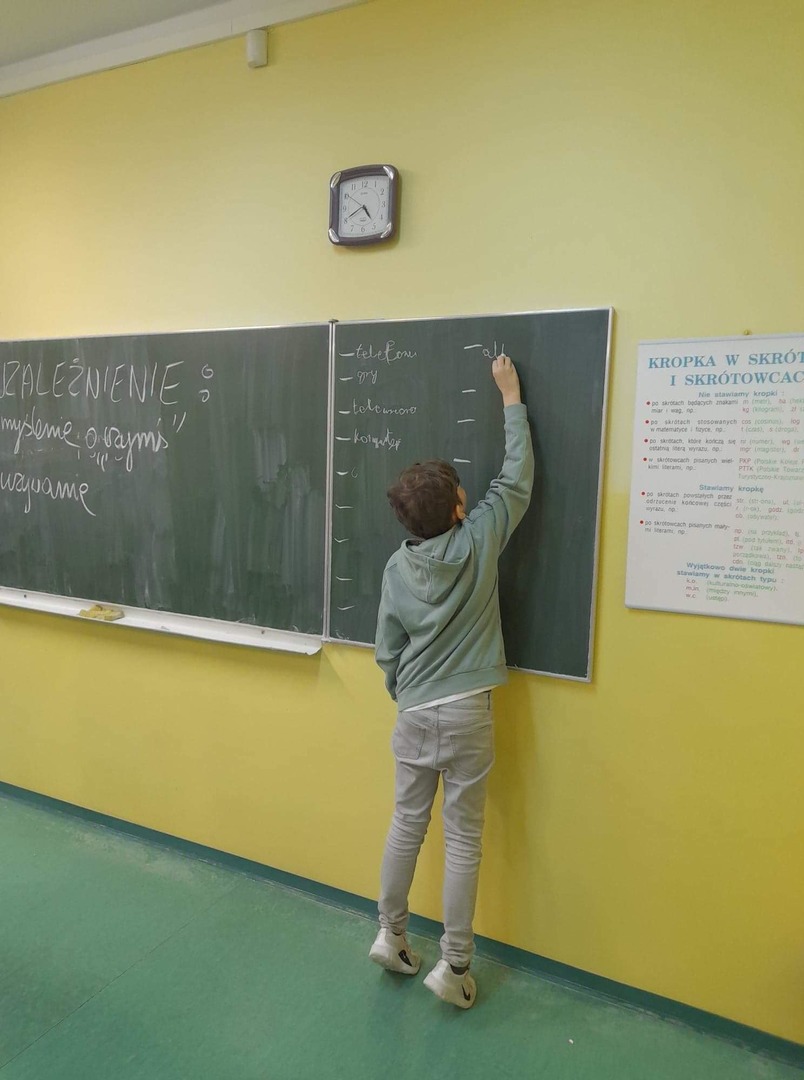 UZALEŻNIENIE :
myślenie „o czymś”
używanie
– telefonu
– gry
–
– komputer
– alk
KROPKA W SKRÓT
I SKRÓTOWCAC
Nie stawiamy kropki :
po skrótach będących znakami miar i wag, np.
m (metr), ha (hekt
kg (kilogram), zł
po skrótach stosowanych w matematyce i fizyce, np.
cos (cosinus), log
t (czas), a (przysp.
po skrótach, które kończą się ostatnią literą wyrazu, np.
nr (numer), wg
mgr (magister), dr
w skrótowcach pisanych wielkimi literami, np.
PKP (Polskie Koleje
PTTK (Polskie Towarz
Turystyczno-Krajoznaw
Stawiamy kropkę
po skrótach powstałych przez odrzucenie końcowej części wyrazu, np.
str. (strona), ul. (u
r. (rok), godz. (godz
ob. (obywatel)
po skrótowcach pisanych małymi literami, np.
np. (na przykład), tj.
pt. (pod tytułem), itd. (i
tzw. (tak zwany),
cdn. (ciąg dalszy nastą
Wyjątkowo dwie kropki
stawiamy w skrótach typu :
k.o. (kulturalno-oświatowy),
m.in. (między innymi),
w.c. (ustęp)